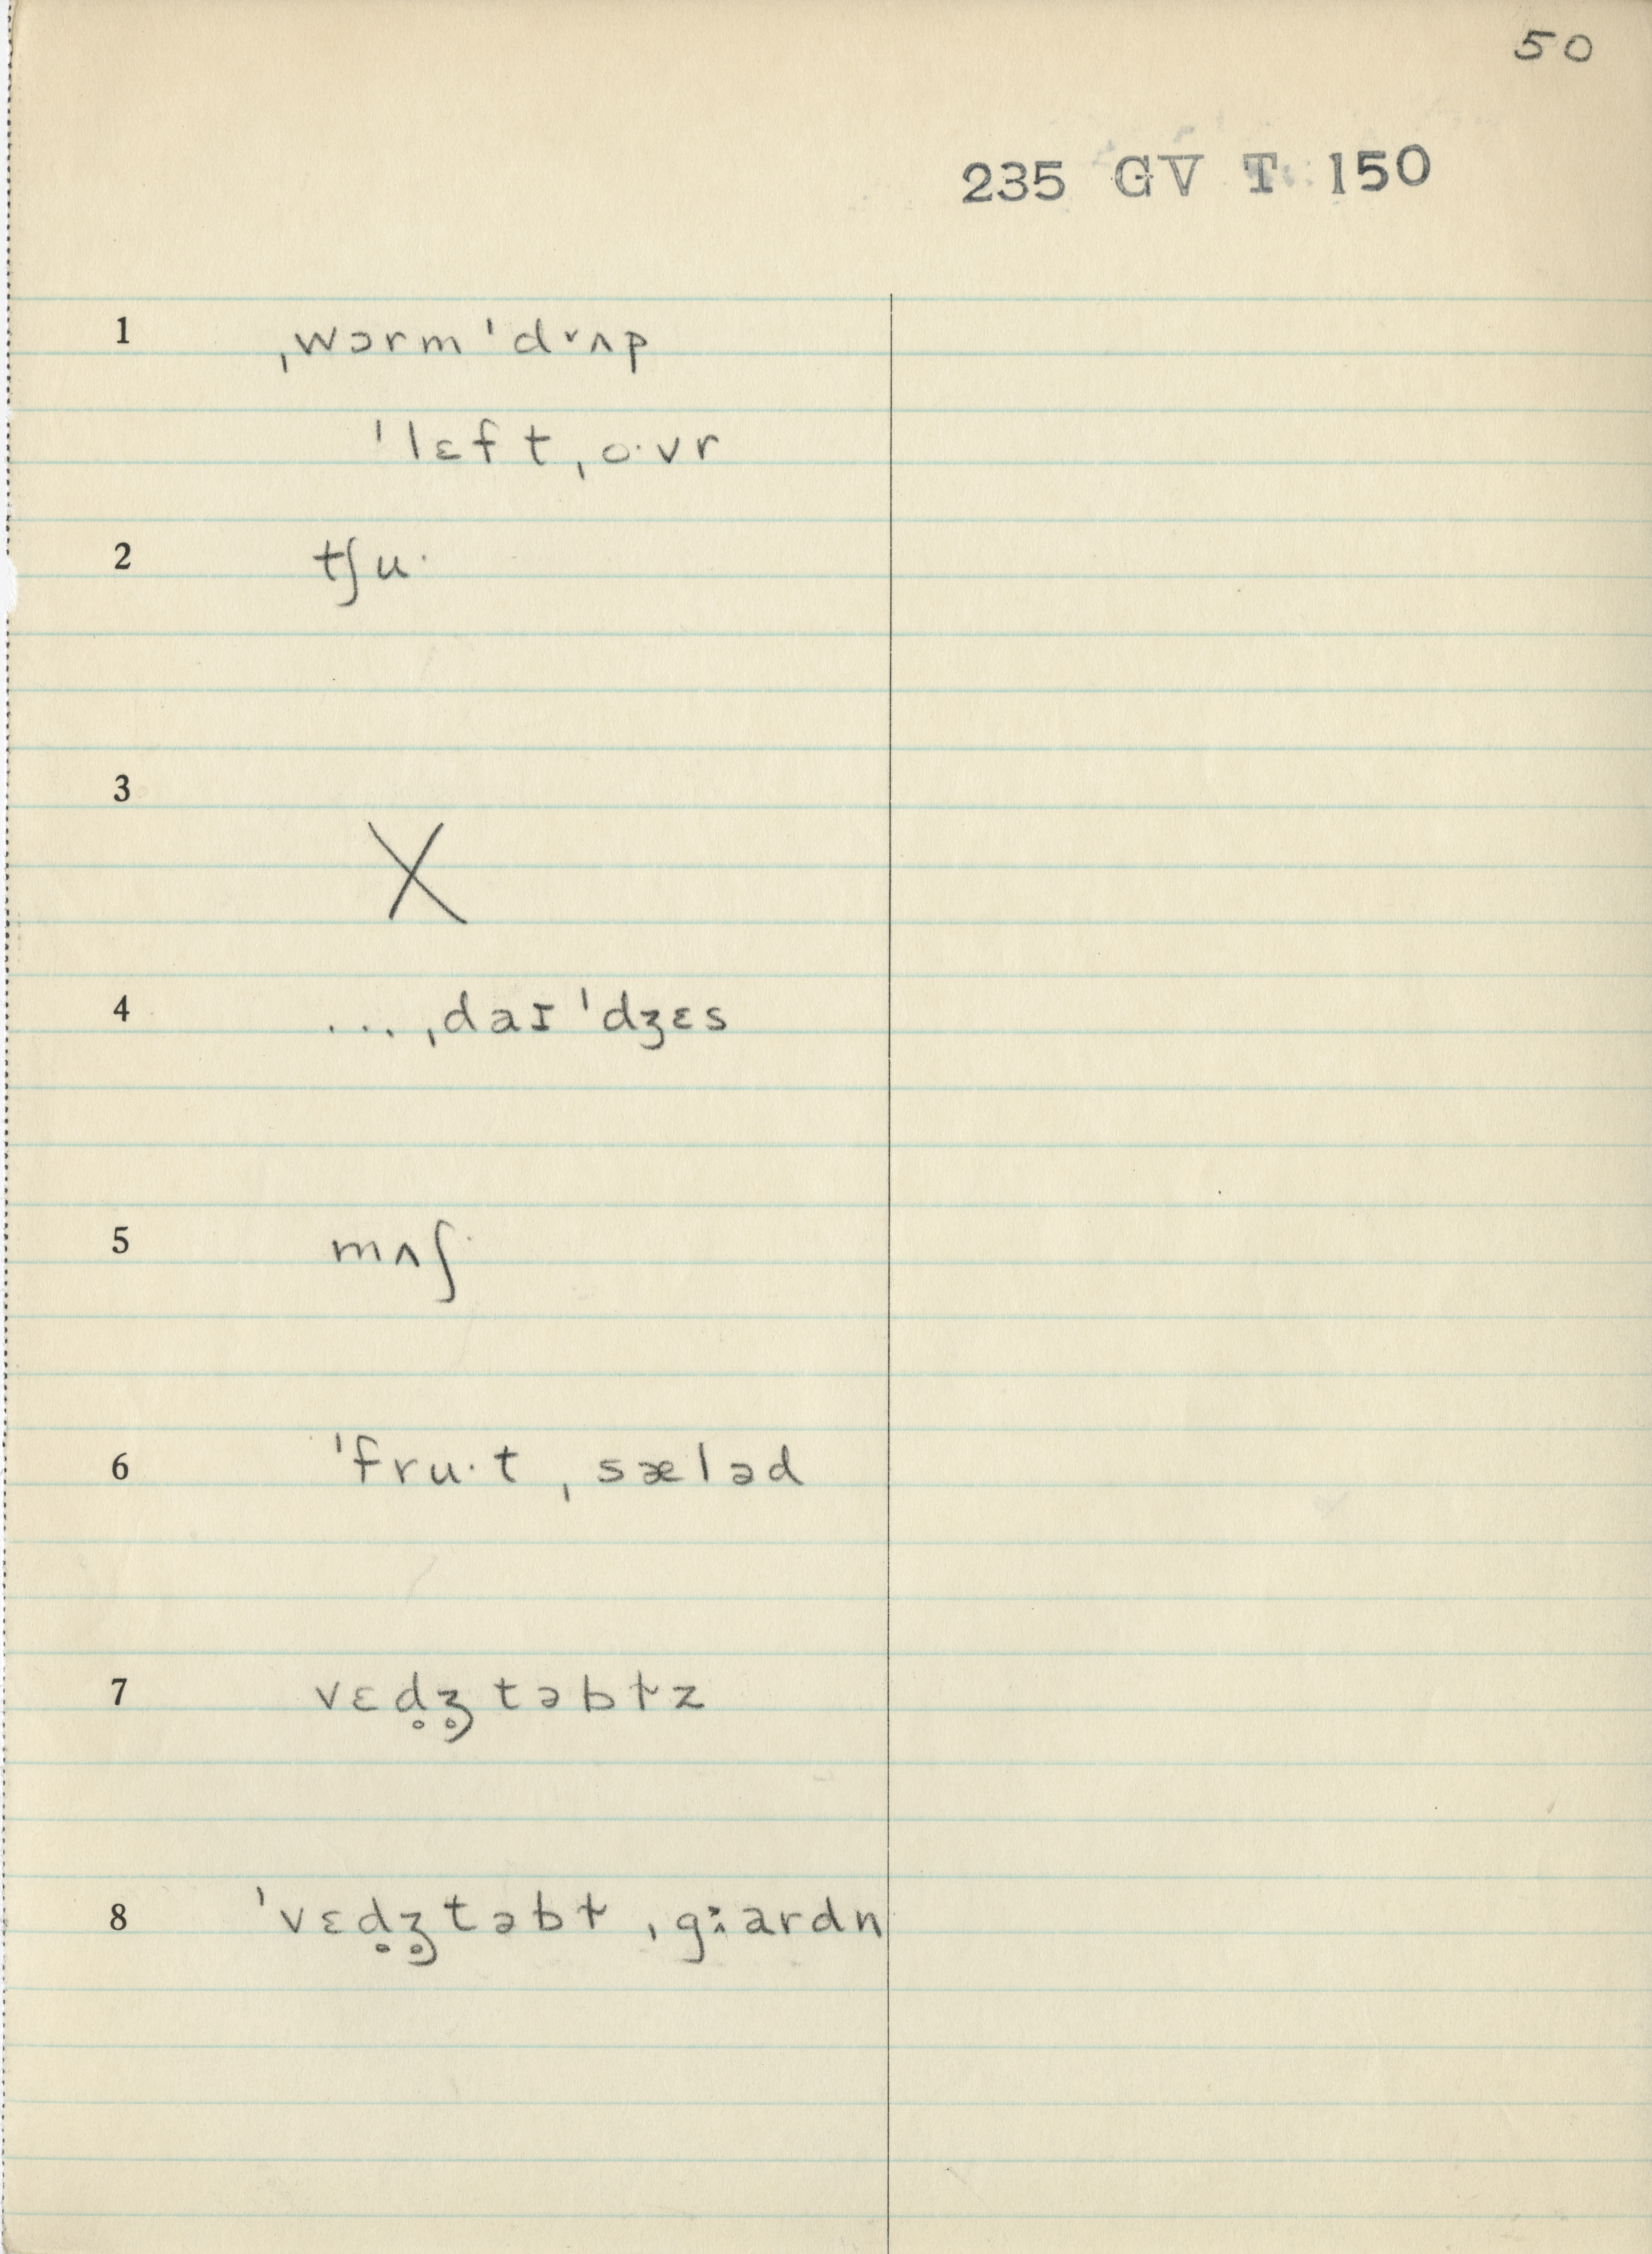 50
235 GV T 150
1 ˌwɔrm ˈdᵛʌp
ˈlɛftˌo·vr
2 tʃu·
3 X
4 ... ˌdaɪˈdʒɛs
5 mʌʃ
6 ˈfru·tˌsæləd
7 vɛd̥ʒ̥təbɫz
8 ˈvɛd̥ʒ̥təbɫ ˌgːardn